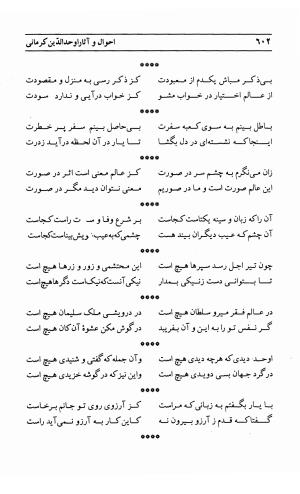 ۶۰۲ احوال و آثار اوحدالدّین کرمانی
****
بی‌ذکر مباش یکدم از معبودت کز ذکر رسی به منزل و مقصودت
از عالم اختیار در خواب مشو کز خواب درآیی و ندارد سودت
****
باطل بینم به سوی کعبه سفرت بی‌حاصل بینم سفر پر خطرت
اینجا که نشسته‌ای در دل بگشا تا یار در آن لحظه درآید زدرت
****
زان می‌نگرم به چشم سر در صورت کز عالم معنی است اثر در صورت
این عالم صورت است و ما در صوریم معنی نتوان دید مگر در صورت
****
آن را که زبان و سینه یکتاست کجاست بر شرع وفا و راست کجاست
آن چشم که عیب دیگران بیند هست چشمی که به عیب خویش بیناست کجاست
****
چون تیر اجل رسد سپرها هیچ است این محتشمی و زور و زرها هیچ است
تا بتوانی دست ز نیکی بمدار نیک آنست که نیک است دگرها هیچ است
****
در عالم فقر میر و سلطان هیچ است در درویشی ملک سلیمان هیچ است
گر نفس تو را به این و آن بفریبد در گوش مکن عشوهٔ آن کان هیچ است
****
اوحد دیدی که هرچه دیدی هیچ است وآن جمله که گفتی و شنیدی هیچ است
در گرد جهان بسی دویدی هیچ است واین نیز که در گوشه خزیدی هیچ است
****
با یار بگفتم به زبانی که مراست کز آرزوی روی تو جانم برخاست
گفتا که قدم ز آرزو بیرون نه کاین کار به آرزو نمی‌آید راست
****